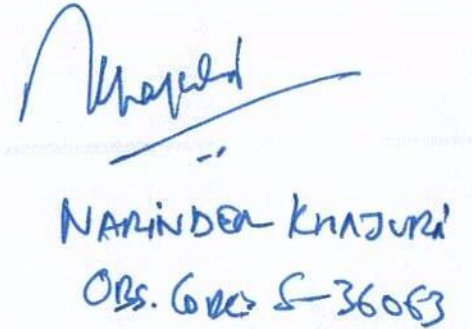 NARINDER KHAJURIA
OBS. CODE S-36063